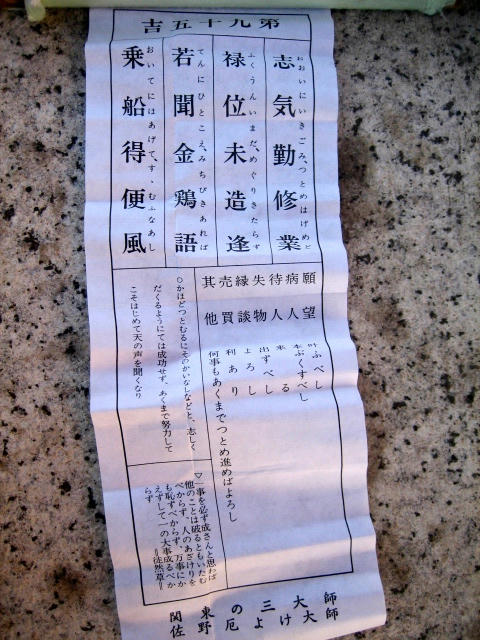 第九十五吉
志気勤修業
おおいにいきごみ、つとめはげめど
禄位未造逢
ふくうんいまだ、めぐりきたらず
若聞金鶏語
てんにひとこえ、みちびきあれば
乗船得便風
おいてにはあげて、す、むふなあし
願望 叶ふべし
病人 本ぶくすべし
待人 来る
失物 出ずべし
縁談 よろし
売買 利あり
其他 何事もあくまでつとめ進めばよろし
○かほどつとむるにそのかいなしなどと、志しく
だくるようにては成功せず、あくまで努力して
こそはじめて天の声を聞くなり
▽一事を必ず成さんと思わば
他のことは破るともいたむ
べからず、人のあざけりを
も恥ずべからず、万事にか
えずして一の大事成るべか
らず ＝徒然草＝
師師
大大
け
三よ
の厄
東野
関佐